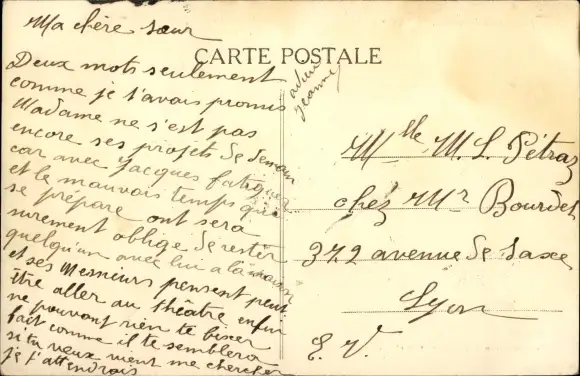 Ma chère sœur
CARTE POSTALE
Deux mots seulement
comme je t'avais promis
Madame ne s'est pas
encore ses projets de demain
car avec Jacques fatiguer
et le mauvais temps qui
se prépare ont sera
surement oblige de rester
quelqu'un avec lui a la maison
et ses Messieurs pensent peut
être aller au théâtre enfin
ne pouvant rien te
fait comme il te semblera
si tu veux vient me chercher
je t'attendrais
adieu
Jeanne
Mlle M. L. Pétraz
chez Mr Bourdet
372 avenue de Saxe
Lyon
E. V.